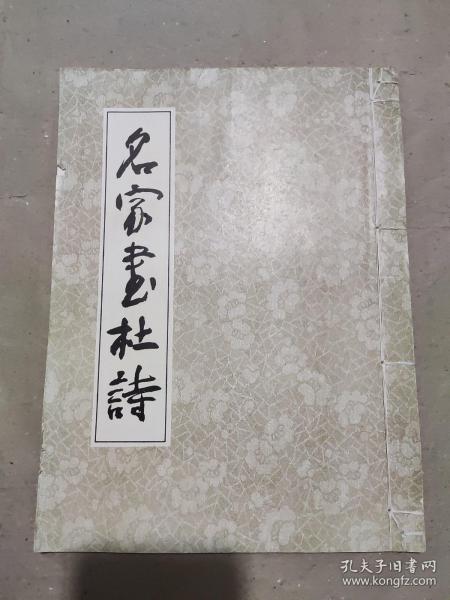 名家画杜詩
孔夫子旧书网
www.kongfz.com